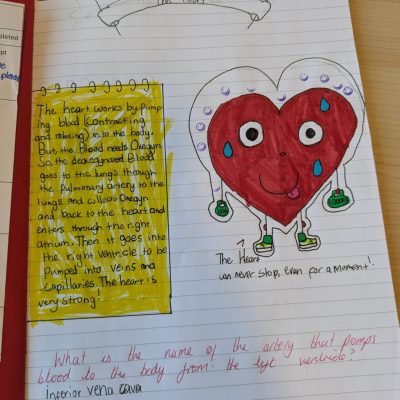 pleted
The heart works by pump-
ing blood (contracting
and relaxing) into the body.
But the blood needs Oxegyn
So, the deoxegynated Blood
goes to the lungs through
the Pulmonary artery to the
lungs and collects Oxegyn
and back to the heart and
enters through the right
atrium. Then it goes into
the right ventricle to be
pumped into veins and
Capillaries. The heart is
very strong!
The Heart
can never stop, even for a moment!
What is the name of the artery that pumps
blood to the body from the left ventricle?
Inferior vena cava